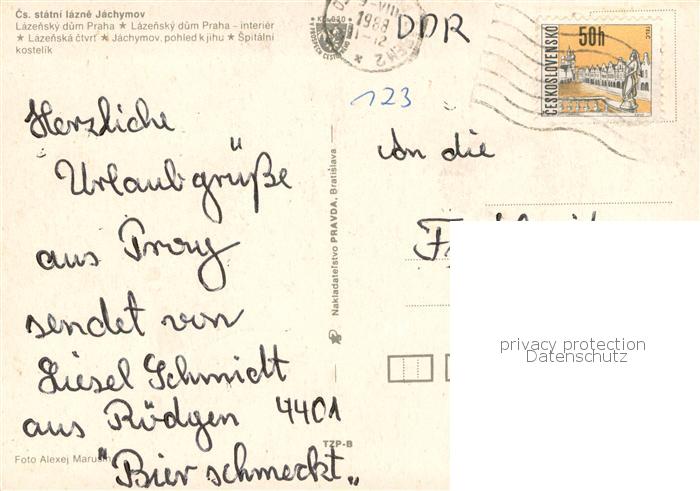 Čs. státní lázně Jáchymov
Lázeňský dům Praha ★ Lázeňský dům Praha – interiér
★ Lázeňská čtvrť ★ Jáchymov, pohled k jihu ★ Špitální
kostelík
Herzliche
Urlaubgrüße
aus Prag
sendet von
Liesel Schmidt
aus Rödgen 4401
"Bier schmeckt"
Foto Alexej Marušin
Nakladateľstvo PRAVDA, Bratislava
TZP-B
1988
DDR
123
ČESKOSLOVENSKO
50h
TELČ
An die
privacy protection
Datenschutz